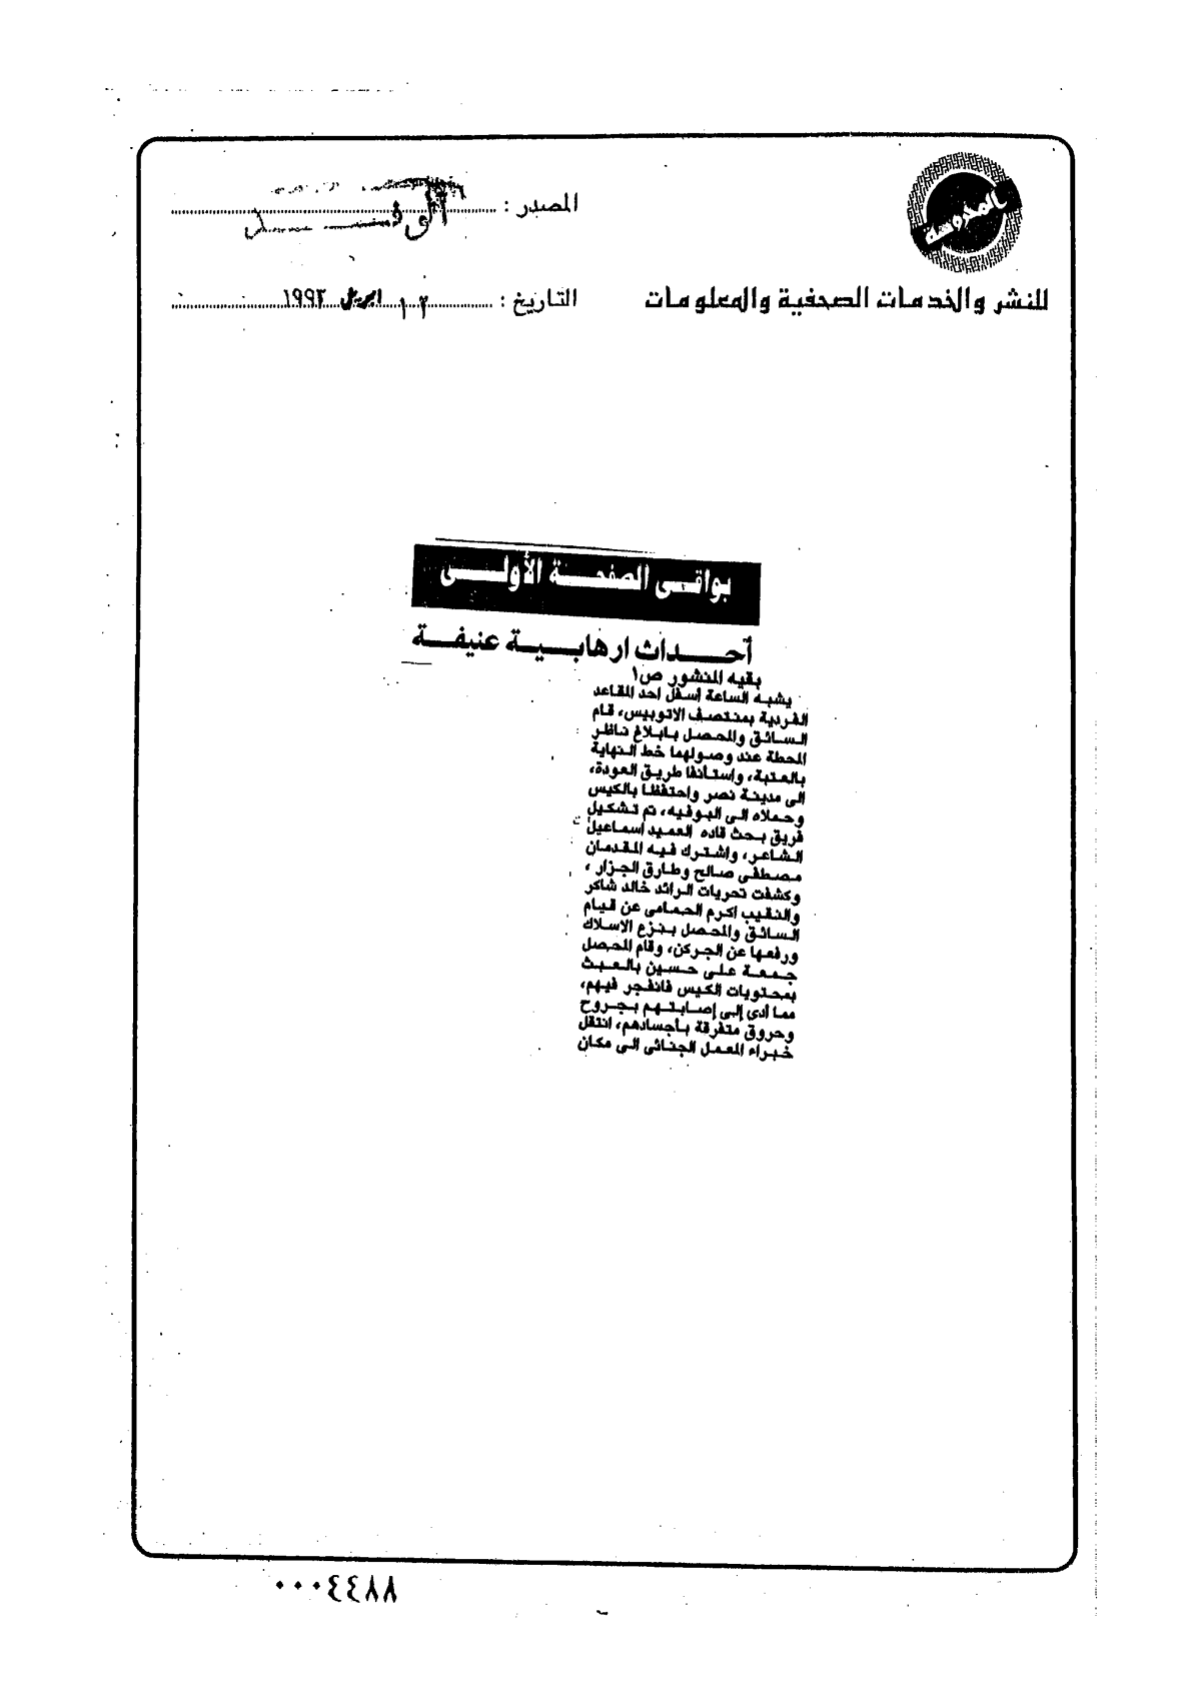 المحروسة
المصدر : الوفد
للنشر والخدمات الصحفية والمعلومات
التاريخ : ١٢ ابريل ١٩٩٣
بواقى الصفحة الأولى
أحداث ارهابية عنيفة
بقيه المنشور ص١
يشبه الساعة أسفل احد المقاعد
الفردية بمنتصف الاتوبيس، قام
السائق والمحصل بابلاغ ناظر
المحطة عند وصولهما خط النهاية
بالعتبة، واستانفا طريق العودة،
الى مدينة نصر واحتفظا بالكيس
وحملاه الى البوفيه، تم تشكيل
فريق بحث قاده العميد اسماعيل
الشاعر، واشترك فيه المقدمان
مصطفى صالح وطارق الجزار ،
وكشفت تحريات الرائد خالد شاكر
والنقيب اكرم الحمامى عن قيام
السائق والمحصل بنزع الاسلاك
ورفعها عن الجركن، وقام المحصل
جمعة على حسين بالعبث
بمحتويات الكيس فانفجر فيهم،
مما أدى إلى إصابتهم بجروح
وحروق متفرقة بأجسادهم، انتقل
خبراء المعمل الجنائى الى مكان
٠٠٠٤٤٨٨